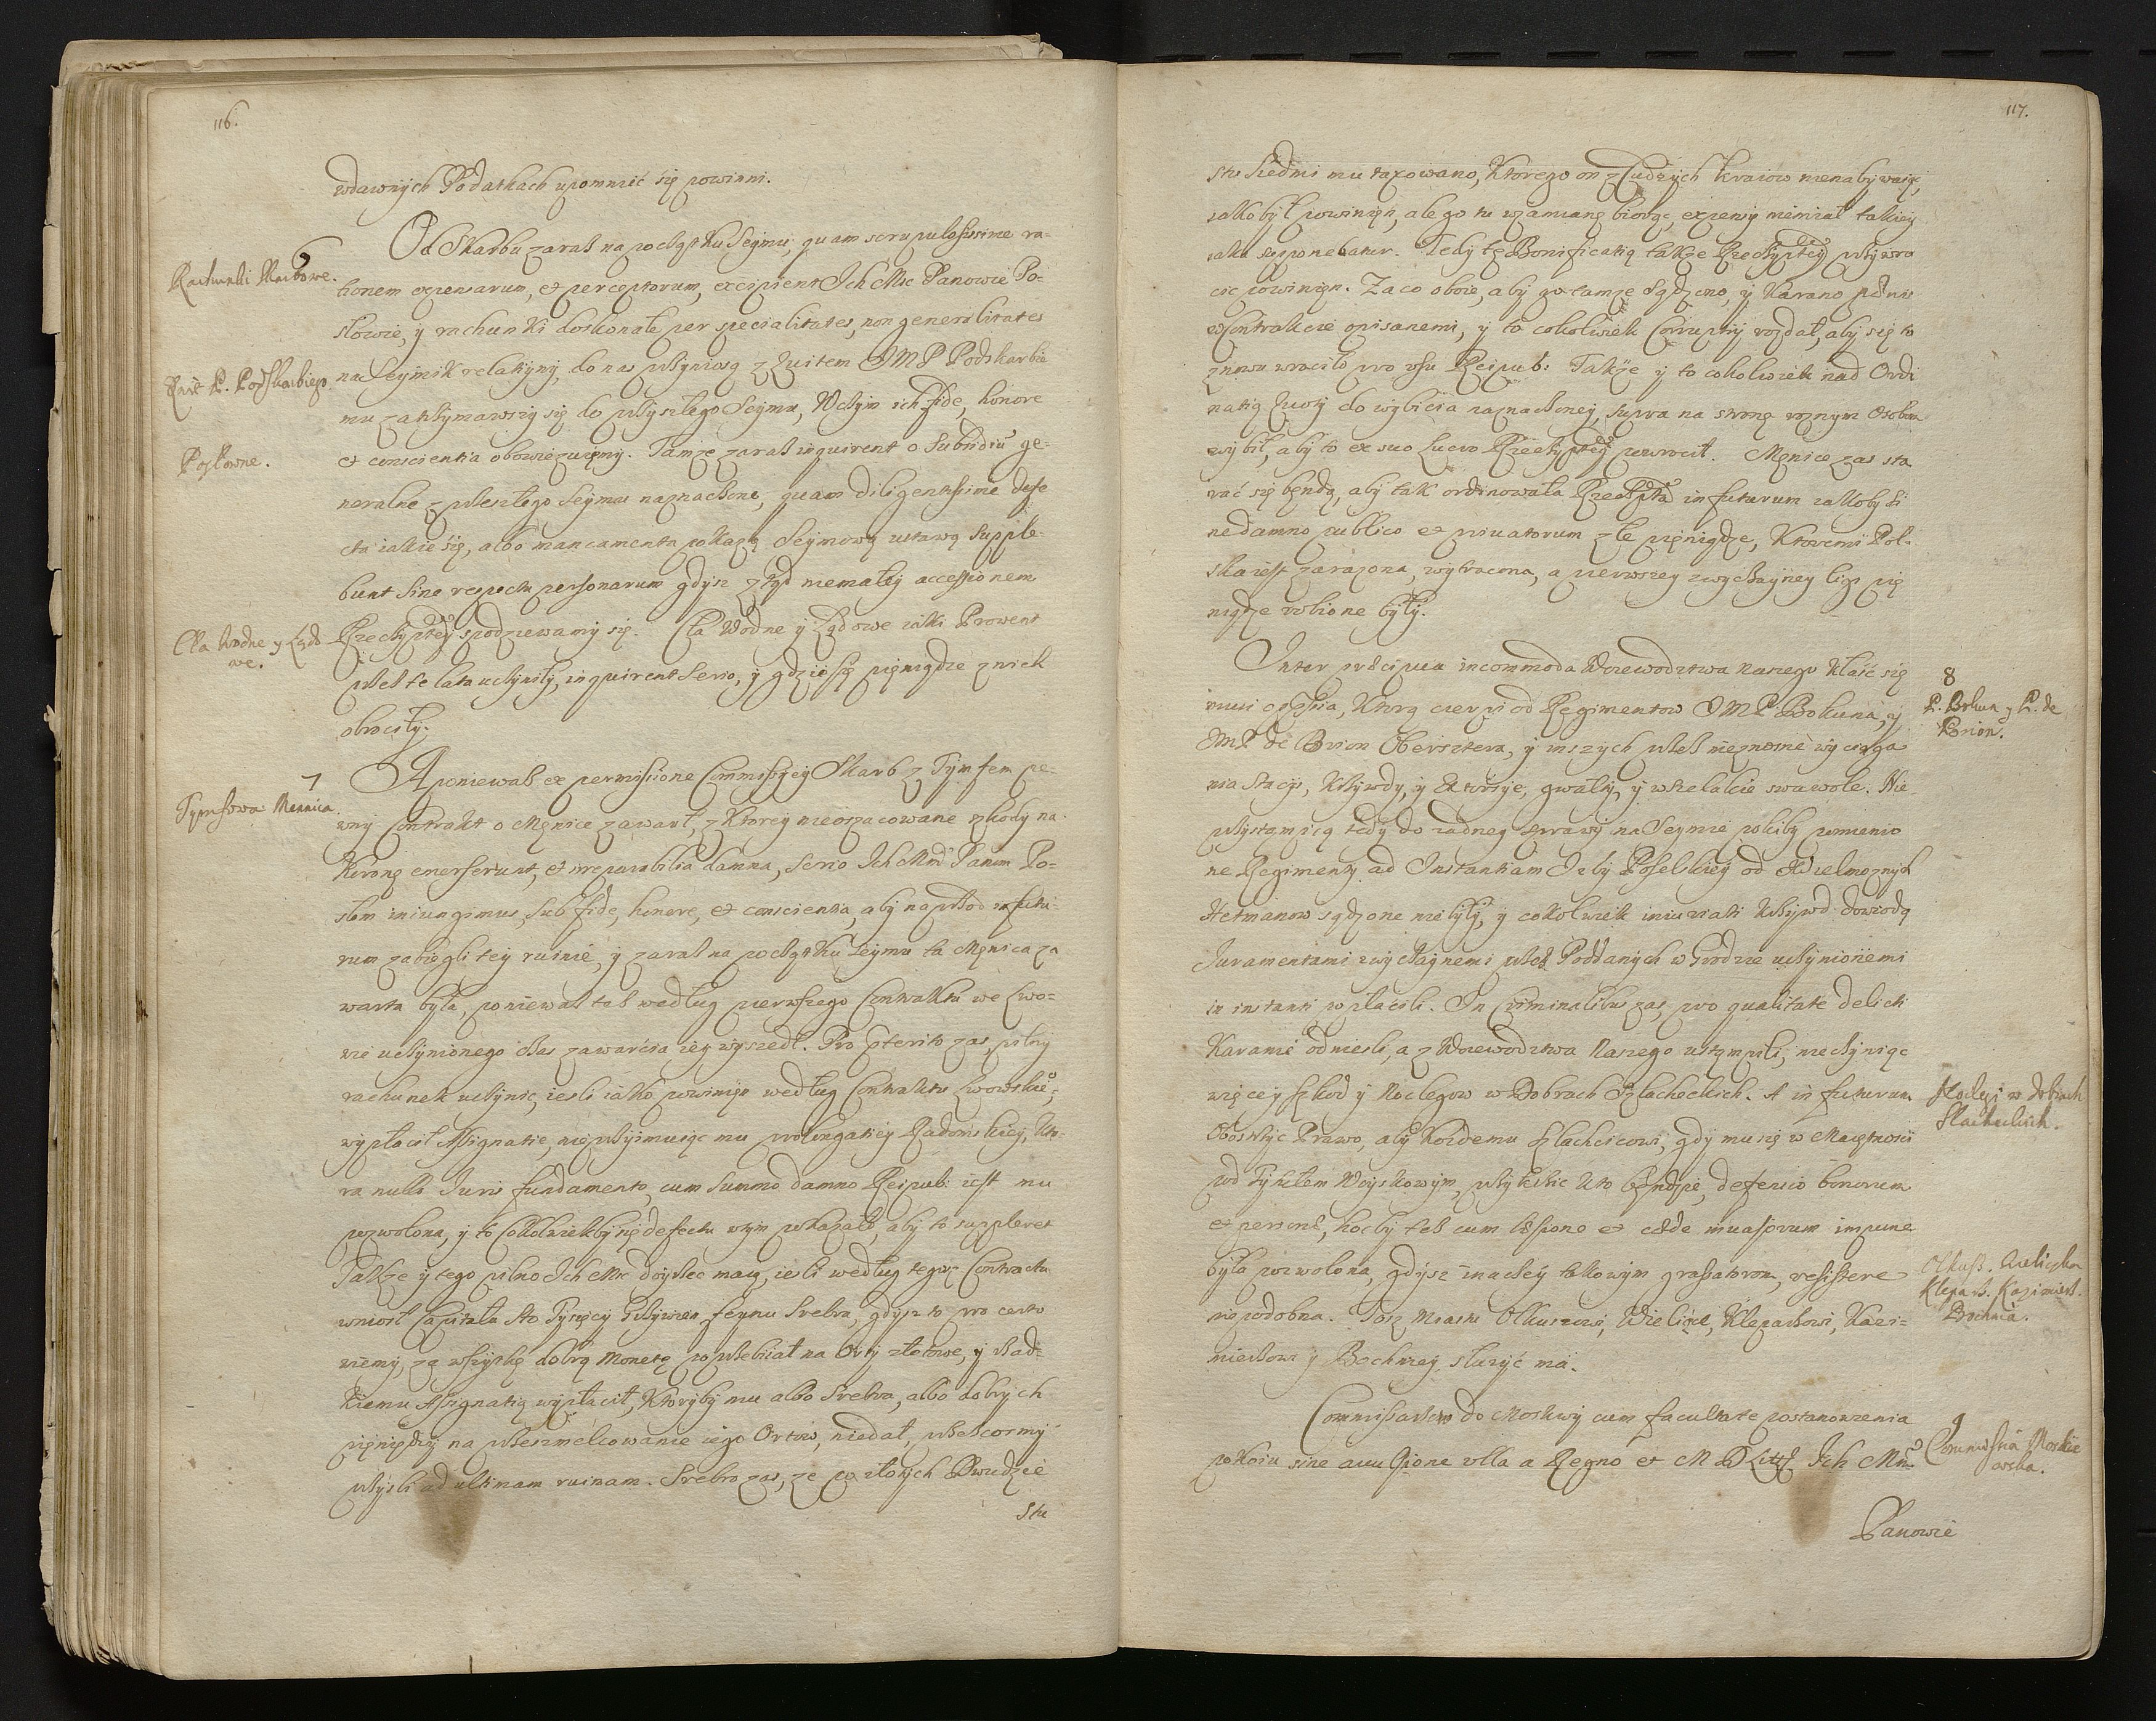 116.
wdawnych Podatkach upomnieć się powinni.
6
Rachunki Skarbowe.
Od Skarbu zaras na początku Seymu, quam scrupulosissime ra-
tionem expensarum, et perceptorum, excipient Ich Mść Panowie Po-
słowie, y rachunki doskonałe per specialitates, non generalitates
Kwit P. Podskarbiego.
na Seymik relatiyny, do nas przyniosą z kwitem JMP Podskarbie
mu zatrzymawszy się do przyszłego Seymu, W czym ich fide, honore
Pogłowne.
et conscientia obowiązuiemy. Tamże zaraz inquirent o Subsidiũ ge-
neralne z przeszłego Seymu naznaczone, quam diligentissime defe
cta iakie się, albo mancamenta pokażą Seymową ustawą supple-
bunt sine respectu personarum gdysz ztąd niemałey accessionem
Cła Wodne y Lądo
we.
Rzeczyptey spodziewamy się. Cła Wodne y Lądowe iaki Prowent
przez te lata uczyniły, inquirent serio, y gdzie się pieniądze z nich
obrociły.
7
Tymfowa Mennica.
A poniewasz ex permissione Commissyey Skarb z Tymfem pe-
wny Contrakt o Męnice zawarł, z ktorey nieoszacowane szkody na
Koronę emerserunt, et irreparabilia damna, serio Ich Mśću Panom Po-
słom iniungimus, sub fide, honore, et conscientia, aby naprzod in futu-
rum zabiegli tey ruinie, y zaras na początku Seymu ta Męnica za
warta była, poniewasz tesz według pierwszego Contraktu we Lwo-
wie uczynionego czas zawarcia iey wyszedł. Pro pterito zas, pilny
rachunek uczynic, iesli iako powinien według Contraktu Lwowskiẽ
wypłacił Assignatie, nieprzyimuiąc mu prolongatiey Radomskiey, kto-
ra nullo Iuris fundamento, cum summo damno Reipub: iest mu
pozwolona, y to Cokolwiekby się defectu wtym pokazało, aby to suppleret
Także y tego pilno Ich Mść doyrzec maią, iesli według tegosz Contractu
wniosł Capitału sto Tysięcy Grzywien feynu srebra, gdysz to pro certo
wiemy, że wszystkę dobrą Monetę poprzebiiał na Orty złotowe, y zad-
nemu Assignatią wypłacił, ktoryby mu albo srebra, albo dobrych
pieniędzy na przeszmelcowanie iego Ortow, niedał, przez co smy
przyszli ad ultimam ruinam. Srebro zas, że po złotych Dwudzie
stu
117.
stu Siedmi mu taxowano, ktorego on z Cudzych kraiow nienabywaiąc,
iako był powinien, ale go tu wzamianę biorąc, expensy niemiał takiey
iaka supponebatur. Tedy tę Bonificatią także Rzeczyptey przywro
cic powinien. Za co oboie, aby go tamże sądzono, y karano pœnis
w Contrakcie opisanemi, y to cokolwiek Corruptiy rozdał, aby się to
znowu wrociło pro usu Reipub: Także y to cokolwiek nad Ordi
natią kwoty do wybicia naznaczoney, supra na stronę roznym Osobom
wybił, aby to ex suo Lucro Rzeczyptey powrocił. Męnice zas sta
rać się będą, aby tak ordinowała Rzeczpta in futurum iakoby ti
ne damno publico et privatorum złe pieniądze, ktoremi Pol-
ska iest zarażona, wytracona, a pierwszey zwyczayney ligi pie
niądze robione były.
8
P. Bokun y P. de
Brion.
Inter præcipua incommoda Woiewodztwa Naszego kłaść się
musi oppssia, ktorą cierpi od Regimentow JMP Bokuna, y
JMP de Brion Obersztera, y inszych przez nieznosne wyciąga
nia stacyi, krzywdy, y Extorsye, gwałty, y wszelakie swawole. Nie
przystąpią tedy do zadney sprawy na Seymie pokiby pomienio
ne Regimenty ad Instantiam Izby Poselskiey od Wielmoznych
Hetmanow sądzone nie były, y cokolwiek iniuriati krzywd dowiodą
Iuramentami zwyczaynemi przez Poddanych w Grodzie uczynionemi
in instanti popłacili. In Criminalibus zas, pro qualitate delicti
Karanie odniesli, a z Woiewodztwa Naszego ustąmpili, nieczyniąc
Noclegi w dobrach
Slacheckich.
więcey szkod y Noclegow w Dobrach Szlacheckich. A in futurum
Obostrzyc Prawo, aby kożdemu szlachcicowi, gdy mu się w Maiętności
pod Tytułem Woyskowym, przykrzic kto będzie, defensio bonorum
et personæ, hocby tesz cum læsione et cæde invasorum impune
Olkusz. Wieliczka
Klepars. Kazimierz.
Bochnia.
była pozwolona, gdysz inaczey takowym grassatorom, resistere
niepodobna. Tosz Miastu Olkuszowi, Wieliczce, Kleparzowi, Kazi-
mierzowi y Bochniey służyć ma.
9
Commissia Moskie
wska.
Commissarzow do Moskwy cum facultate postanowienia
pokoiu sine avulsione ulla a Regno et M D Litt. Ich Mść
Panowie